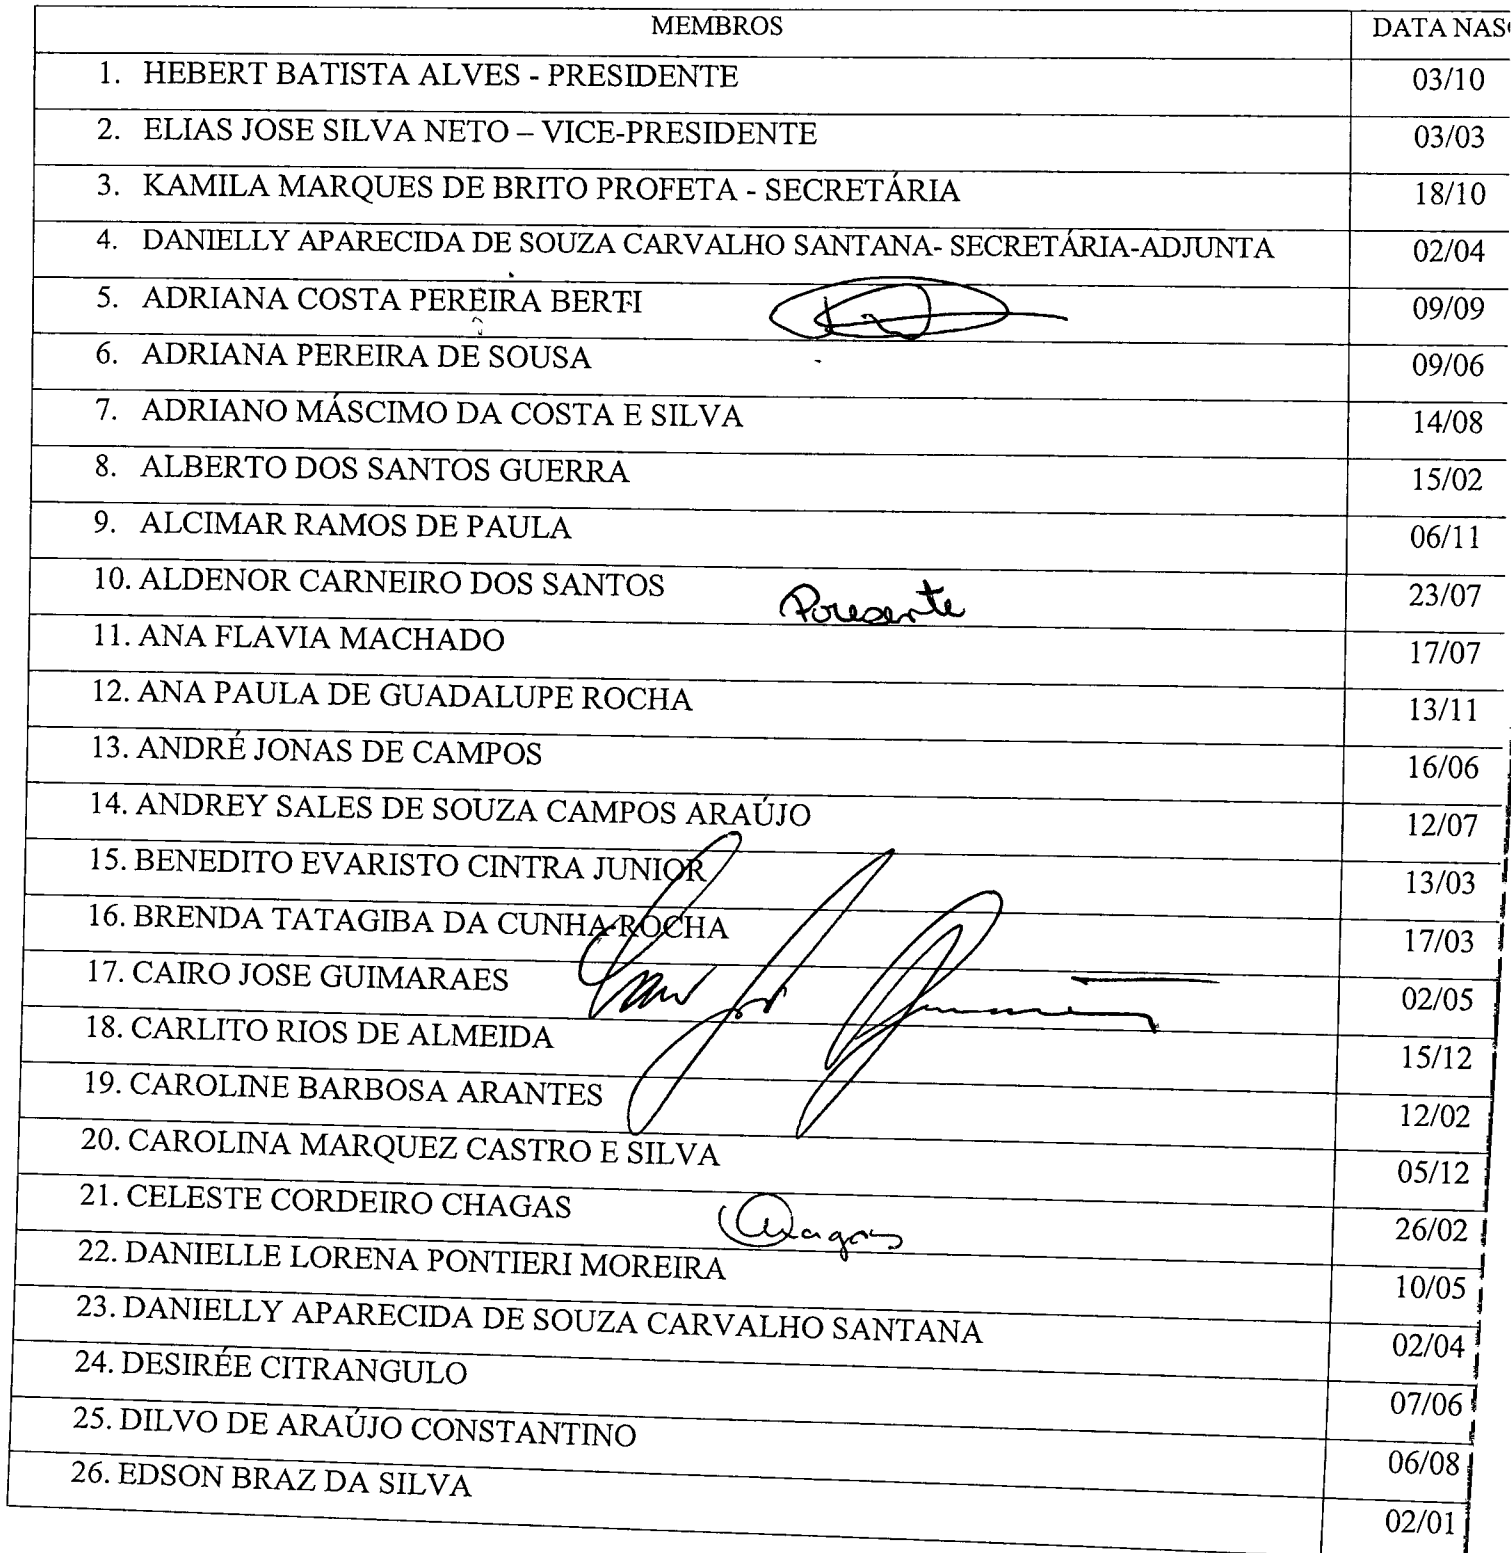 MEMBROS DATA NAS
1. HEBERT BATISTA ALVES - PRESIDENTE 03/10
2. ELIAS JOSE SILVA NETO – VICE-PRESIDENTE 03/03
3. KAMILA MARQUES DE BRITO PROFETA - SECRETÁRIA 18/10
4. DANIELLY APARECIDA DE SOUZA CARVALHO SANTANA- SECRETÁRIA-ADJUNTA 02/04
5. ADRIANA COSTA PEREIRA BERTI 09/09
6. ADRIANA PEREIRA DE SOUSA 09/06
7. ADRIANO MÁSCIMO DA COSTA E SILVA 14/08
8. ALBERTO DOS SANTOS GUERRA 15/02
9. ALCIMAR RAMOS DE PAULA 06/11
10. ALDENOR CARNEIRO DOS SANTOS Presente 23/07
11. ANA FLAVIA MACHADO 17/07
12. ANA PAULA DE GUADALUPE ROCHA 13/11
13. ANDRÉ JONAS DE CAMPOS 16/06
14. ANDREY SALES DE SOUZA CAMPOS ARAÚJO 12/07
15. BENEDITO EVARISTO CINTRA JUNIOR 13/03
16. BRENDA TATAGIBA DA CUNHA ROCHA 17/03
17. CAIRO JOSE GUIMARAES 02/05
18. CARLITO RIOS DE ALMEIDA 15/12
19. CAROLINE BARBOSA ARANTES 12/02
20. CAROLINA MARQUEZ CASTRO E SILVA 05/12
21. CELESTE CORDEIRO CHAGAS Chagas 26/02
22. DANIELLE LORENA PONTIERI MOREIRA 10/05
23. DANIELLY APARECIDA DE SOUZA CARVALHO SANTANA 02/04
24. DESIRÉE CITRANGULO 07/06
25. DILVO DE ARAÚJO CONSTANTINO 06/08
26. EDSON BRAZ DA SILVA 02/01